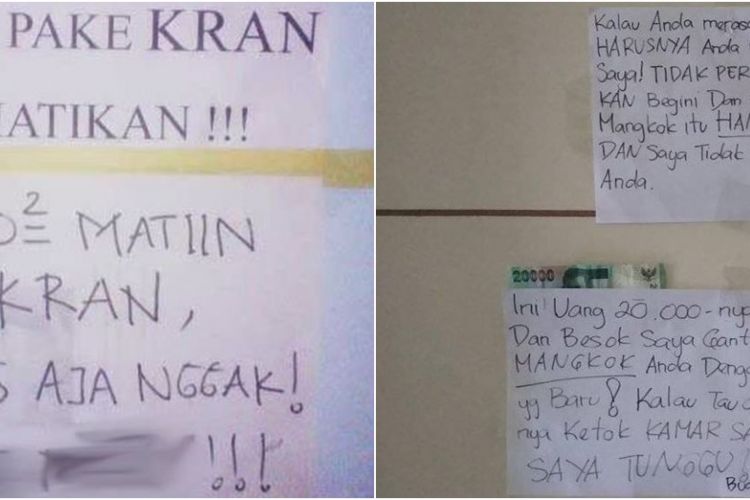 PAKE KRAN
MATIKAN !!!
MATIIN
KRAN,
AJA NGGAK!
!!!
Kalau Anda merasa
HARUSNYA Anda
Saya! TIDAK
KAN Begini Dan
Mangkok itu
DAN Saya Tidak
Anda.
20000
Ini Uang 20.000-nya
Dan Besok Saya Ganti
MANGKOK Anda Dengan
yg Baru! Kalau
nya Ketok KAMAR
SAYA TUNGGU!